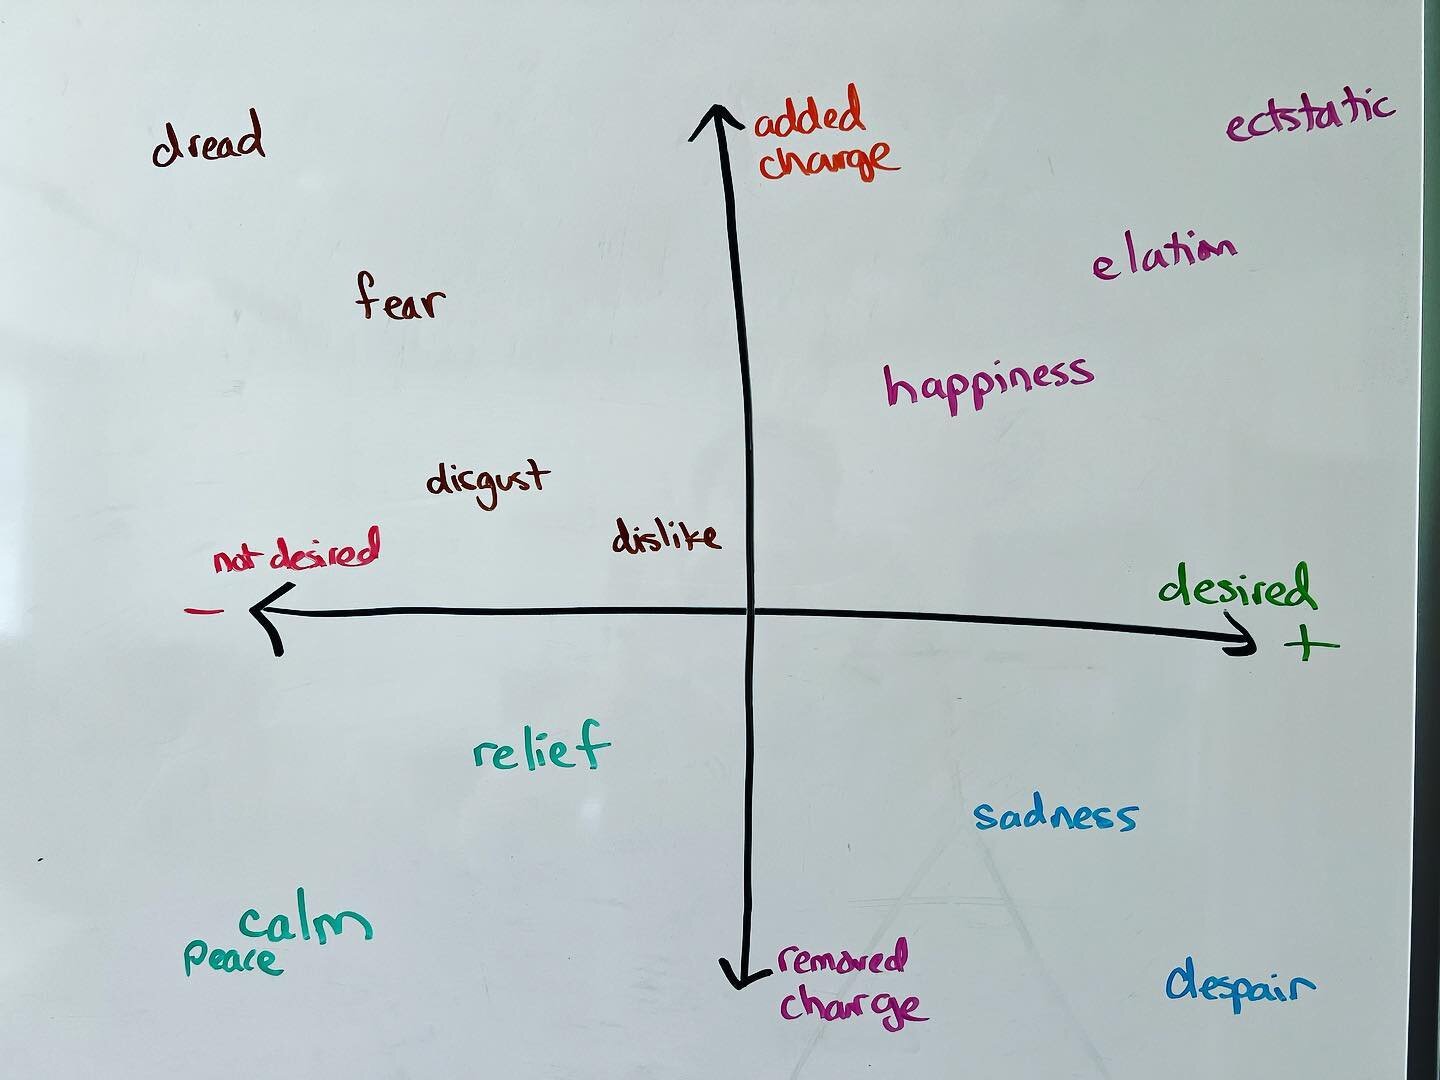 dread
added
charge
ectstatic
elation
fear
happiness
disgust
dislike
not desired
−
desired
+
relief
sadness
calm
peace
removed
charge
despair